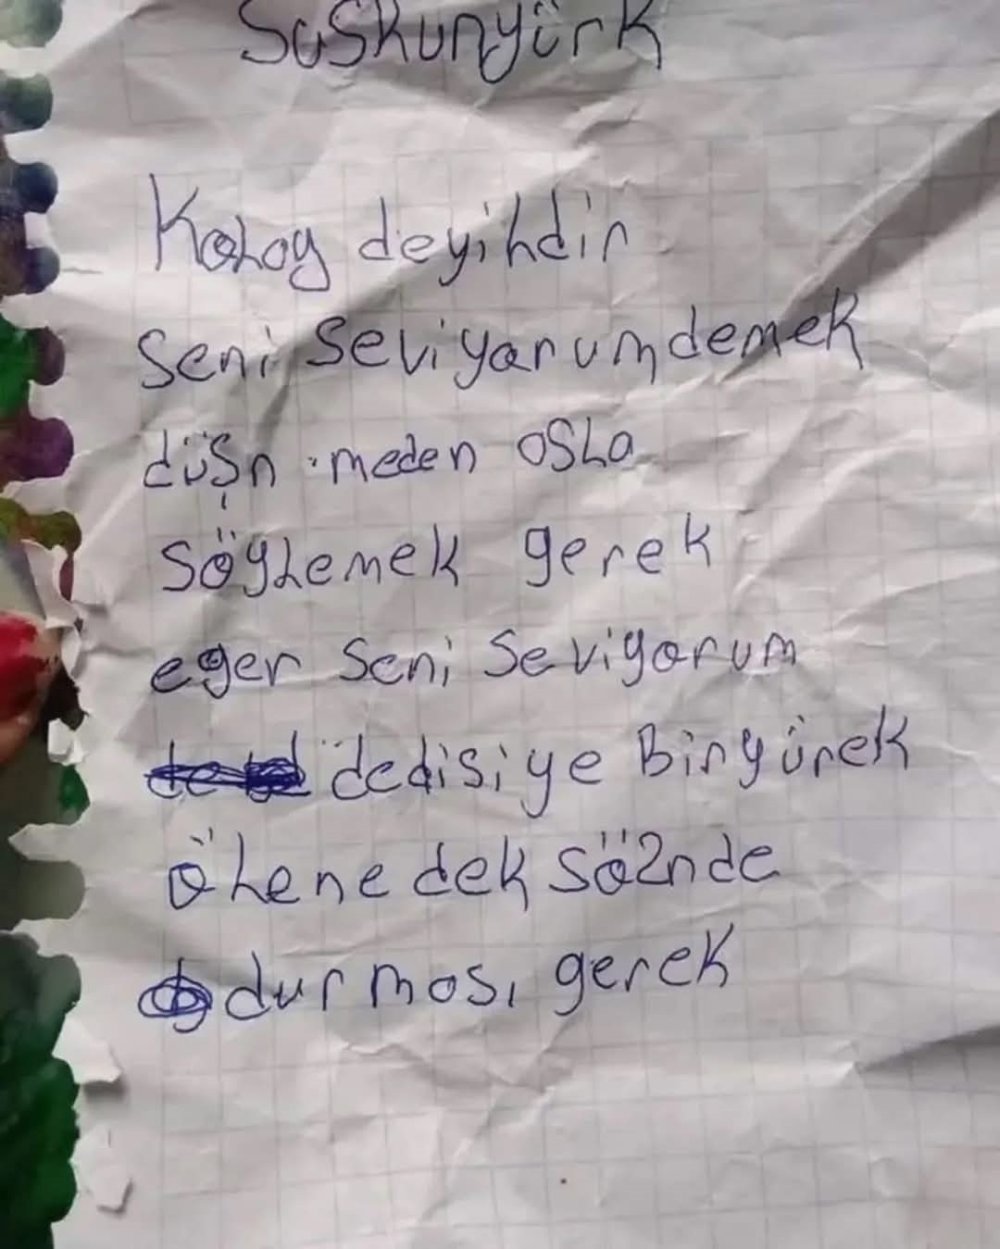 Suskunyürk
Kolay deyildir
seni seviyarumdemek
düşn meden asla
söylemek gerek
eger seni seviyorum
dedisiye Biryürek
ölene dek söznde
durması gerek